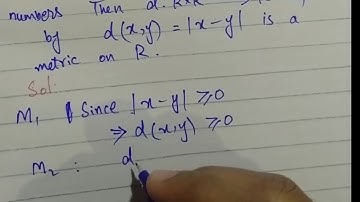 numbers Then d: R×R
by d(x,y) = |x-y| is a
metric on R.
Sol:
M₁ Since |x-y| ⩾0
⇒ d(x,y) ⩾0
M₂ : d